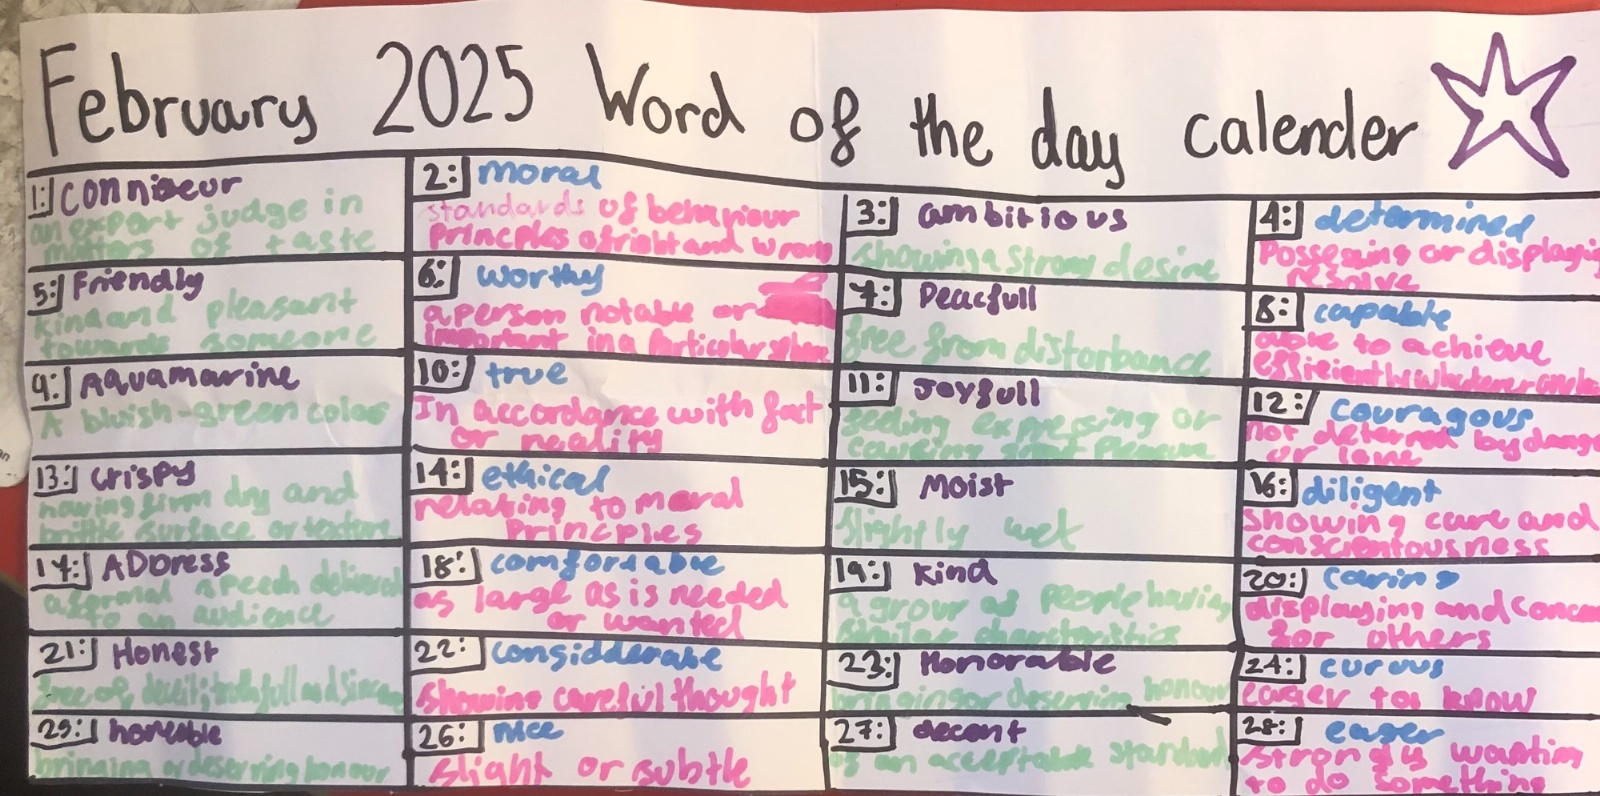 February 2025 Word of the day calender
1: conniseur
an expert judge in
matters of taste
2: moral
standards of behaviour
Principles of right and wrong
3: ambitious
showing a strong desire
4: determined
Possesing or displaying
resolve
5: Friendly
kind and pleasant
towards someone
6: worthy
a person notable or
important in a particular sphere
7: Peacfull
free from disturbance
8: capable
able to achieve
efficiently whatever one has
9: Aquamarine
A bluish-green color
10: true
In accordance with fact
or reality
11: Joyfull
feeling expressing or
causing great pleasure
12: couragous
not deterred by danger
or
13: crispy
having firm dry and
brittle surface or texture
14: ethical
relating to moral
Principles
15: Moist
slightly wet
16: diligent
showing care and
conscientousness
17: ADDress
a formal speech delivered
to an audience
18: comfortable
as large as is needed
or wanted
19: kind
a group of people having
similar characteristics
20: caring
displaying and concern
for others
21: Honest
free of deceit; truthfull and sincere
22: considderate
showing careful thought
23: Honorable
bringing or deserving honour
24: curous
eager to know
25:
bringing or deserving honour
26: nice
slight or subtle
27: decent
of an acceptable standard
28: eager
strongly wanting
to do something